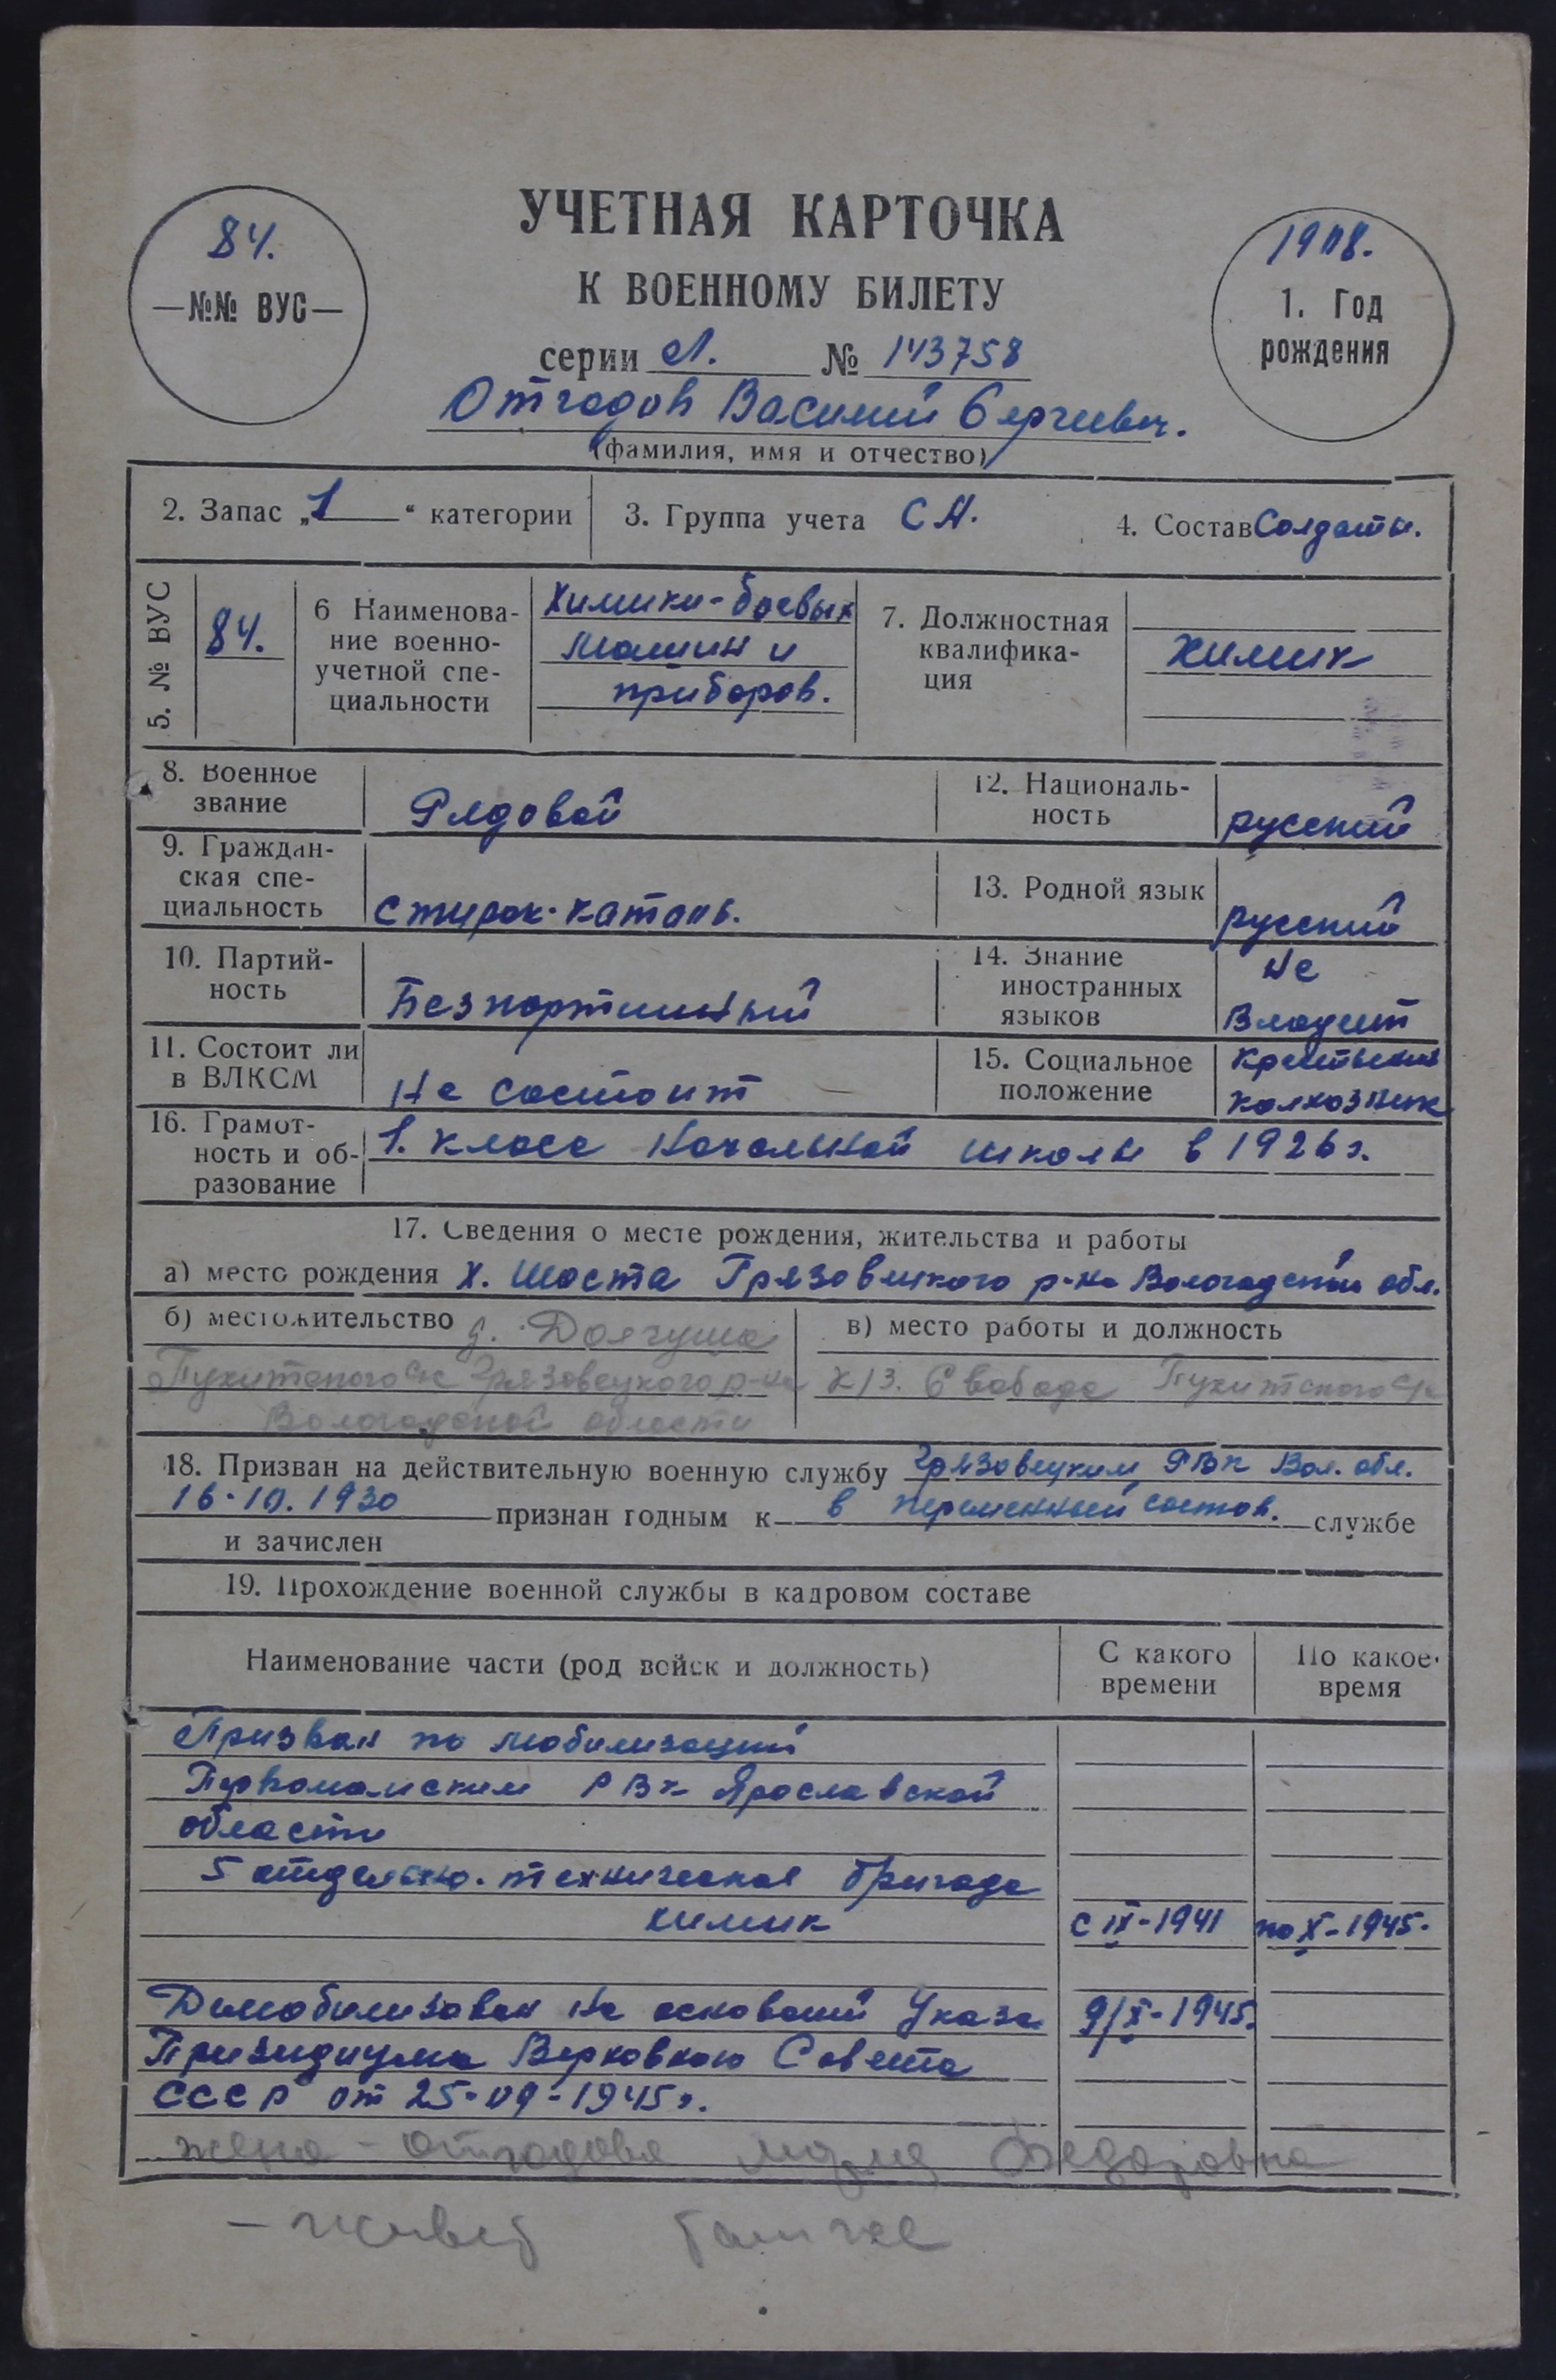 УЧЕТНАЯ КАРТОЧКА
К ВОЕННОМУ БИЛЕТУ
84.
—№№ ВУС—
1908.
1. Год
рождения
серии Л. № 143758
Отгодов Василий Сергиевич.
(фамилия, имя и отчество)
2. Запас „1“ категории
3. Группа учета СА.
4. Состав Солдаты.
5. № ВУС
84.
6 Наименова-
ние военно-
учетной спе-
циальности
Химики-боевых
машин и
приборов.
7. Должностная
квалифика-
ция
химик
8. Военное
звание
Рядовой
12. Националь-
ность
русский
9. Граждан-
ская спе-
циальность
13. Родной язык
русский
10. Партий-
ность
Безпартийный
14. Знание
иностранных
языков
Не
владеет
11. Состоит ли
в ВЛКСМ
Не состоит
15. Социальное
положение
колхозник
16. Грамот-
ность и об-
разование
1. класс начальной школы в 1926 г.
17. Сведения о месте рождения, жительства и работы
а) место рождения х. Шоста Грязовецкого р-на Вологодской обл.
б) местожительство д. Долгуша
Грязовецкого р-на
Вологодской области
в) место работы и должность
к/з. Свобода
18. Призван на действительную военную службу Грязовецким РВК Вол. обл.
16.10.1930 признан годным к в переменный состав. службе
и зачислен
19. Прохождение военной службы в кадровом составе
Наименование части (род войск и должность)
С какого
времени
По какое
время
Призван по мобилизаций
Первомайским РВК Ярославской
области
5 отдельно. техническая бригада
химик
с IX-1941
по X-1945.
Димобилизован на оснований Указа
9/X-1945.
Призидиума Верховного Совета
СССР от 25-09-1945г.
жена - Отгодова Федоровна
- живет там же